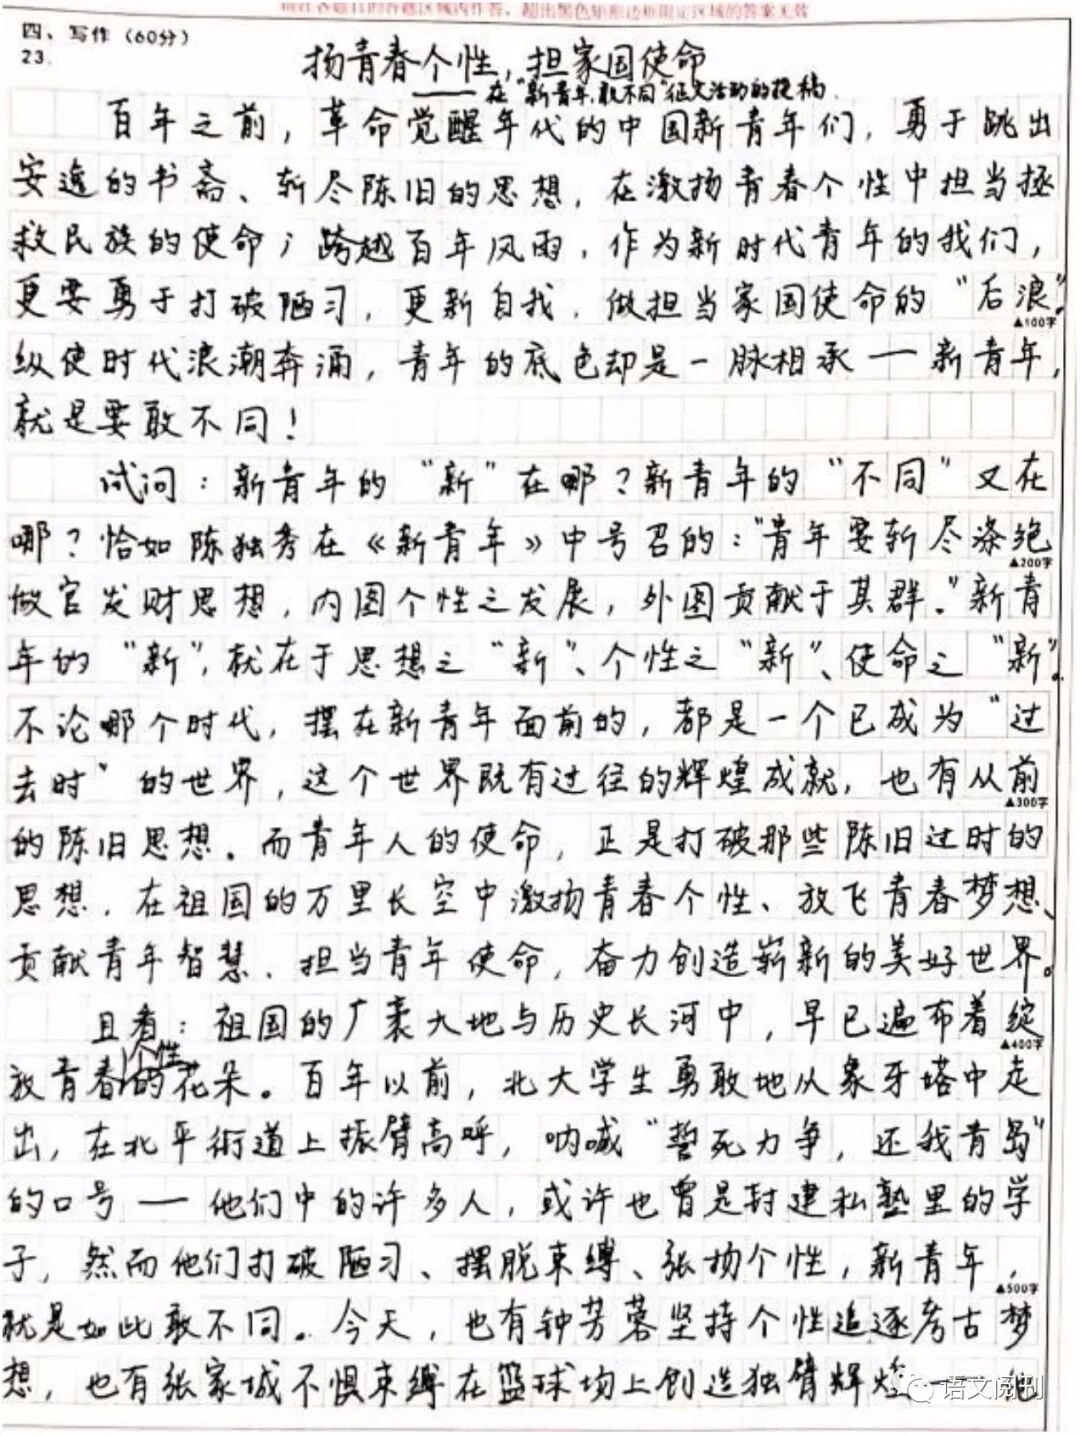 请在各题目的答题区域内作答，超出黑色矩形边框限定区域的答案无效
四、写作（60分）
23.
扬青春个性，担家国使命
——在“新青年，敢不同”征文活动的投稿
百年之前，革命觉醒年代的中国新青年们，勇于跳出
安逸的书斋、斩尽陈旧的思想，在激扬青春个性中担当拯
救民族的使命；跨越百年风雨，作为新时代青年的我们，
更要勇于打破陋习，更新自我，做担当家国使命的“后浪”。
▲100字
纵使时代浪潮奔涌，青年的底色却是一脉相承——新青年，
就是要敢不同！
试问：新青年的“新”在哪？新青年的“不同”又在
哪？恰如陈独秀在《新青年》中号召的：“青年要斩尽涤绝
▲200字
做官发财思想，内图个性之发展，外图贡献于其群。”新青
年的“新”，就在于思想之“新”、个性之“新”、使命之“新”。
不论哪个时代，摆在新青年面前的，都是一个已成为“过
去时”的世界，这个世界既有过往的辉煌成就，也有从前
▲300字
的陈旧思想。而青年人的使命，正是打破那些陈旧过时的
思想，在祖国的万里长空中激扬青春个性、放飞青春梦想、
贡献青年智慧、担当青年使命，奋力创造崭新的美好世界。
且看：祖国的广袤大地与历史长河中，早已遍布着绽
▲400字
放青春个性的花朵。百年以前，北大学生勇敢地从象牙塔中走
出，在北平街道上振臂高呼，呐喊“誓死力争，还我青岛”
的口号——他们中的许多人，或许也曾是封建私塾里的学
子，然而他们打破陋习、摆脱束缚、张扬个性，新青年，
▲500字
就是如此敢不同。今天，也有钟芳蓉坚持个性追逐考古梦
想，也有张家城不惧束缚在篮球场上创造独臂辉煌——他
语文阅刊